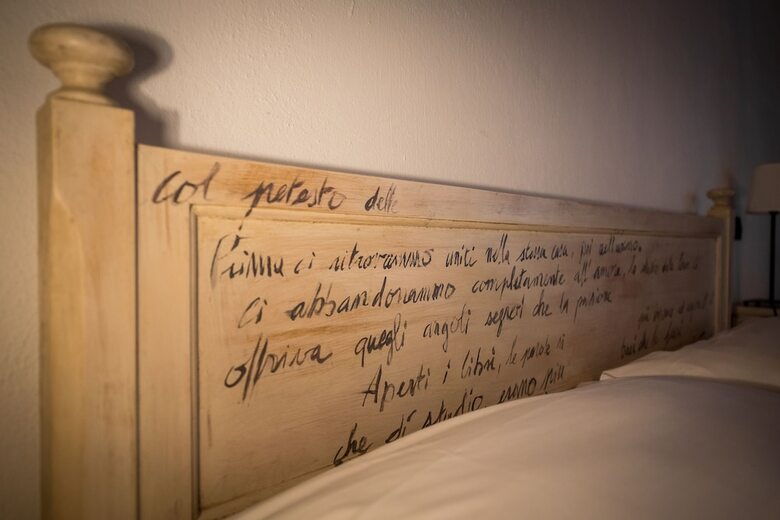 col pretesto delle
Prima ci ritrovammo uniti nella stessa casa, poi nell'animo.
ci abbandonammo completamente all'amore, lo studio delle
offriva quegli angoli segreti che la passione
più
Aperti i libri, le parole
che di studio erano più